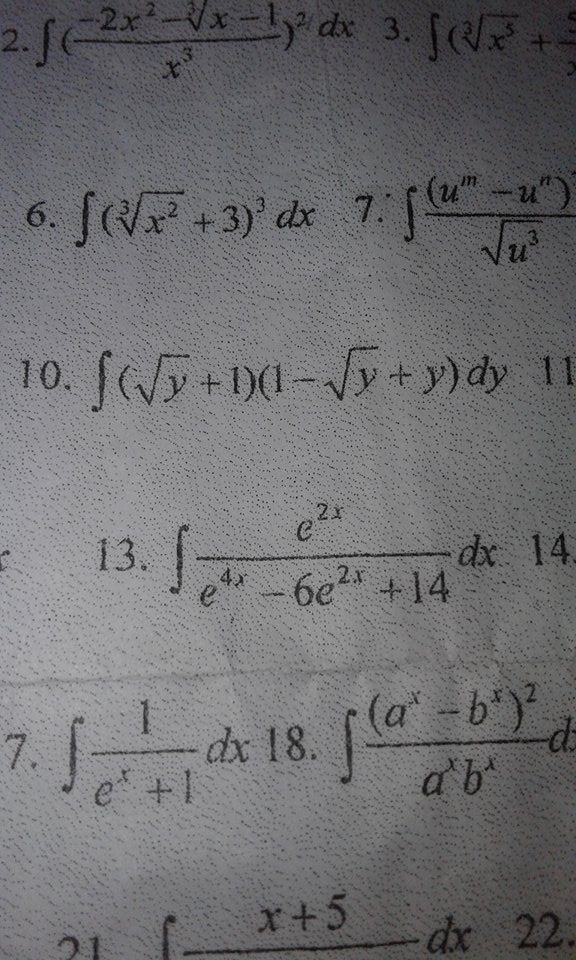 2. ∫(\frac{-2x^2-\sqrt[3]{x}-1}{x^3})^2 dx 3. ∫(\sqrt[3]{x^5} +
6. ∫(\sqrt[3]{x^2} + 3)^3 dx 7. ∫\frac{(u^m - u^n)}{\sqrt{u^3}}
10. ∫(\sqrt{y} + 1)(1 - \sqrt{y} + y) dy 11
13. ∫\frac{e^{2x}}{e^{4x} - 6e^{2x} + 14} dx 14.
7. ∫\frac{1}{e^x + 1} dx 18. ∫\frac{(a^x - b^x)^2}{a^x b^x} d
21. ∫ x + 5 dx 22.